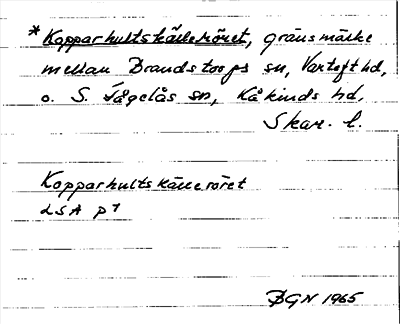 *Kopparhultskälleröret, gränsmärke
mellan Brandstorps sn, Vartoft hd,
o. S. Fågelås sn, Kåkinds hd,
Skar. l.
Kopparhultskälleröret
LSA p1
BGN 1965